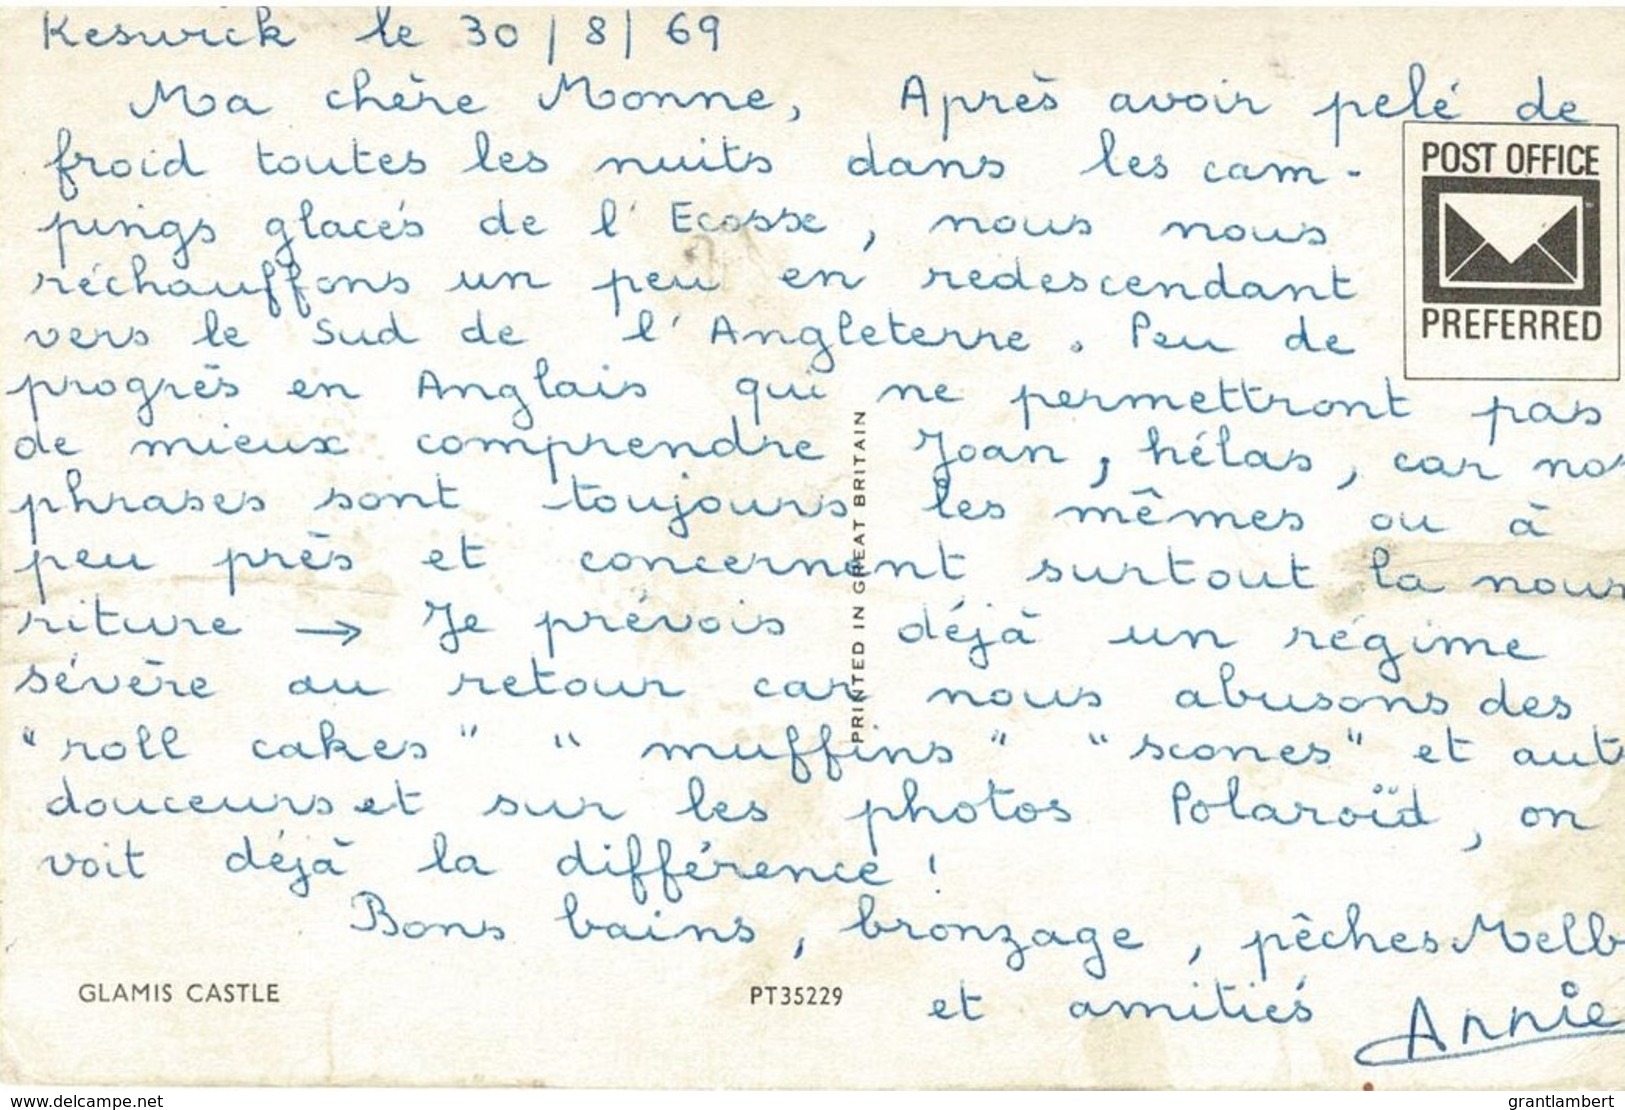 Keswick le 30/8/69
Ma chère Monne, Après avoir pelé de
froid toutes les nuits dans les cam-
pings glacés de l'Ecosse, nous nous
réchauffons un peu en redescendant
vers le Sud de l'Angleterre. Peu de
progrès en Anglais qui ne permettront pas
de mieux comprendre Joan, hélas, car nos
phrases sont toujours les mêmes ou à
peu près et concernent surtout la nour
riture → Je prévois déjà un régime
sévère au retour car nous abusons des
"roll cakes" "muffins" "scones" et aut
douceurs et sur les photos Polaroïd, on
voit déjà la différence !
Bons bains, bronzage, pêches Melb
et amitiés Annie
POST OFFICE
PREFERRED
PRINTED IN GREAT BRITAIN
GLAMIS CASTLE
PT35229
www.delcampe.net
grantlambert